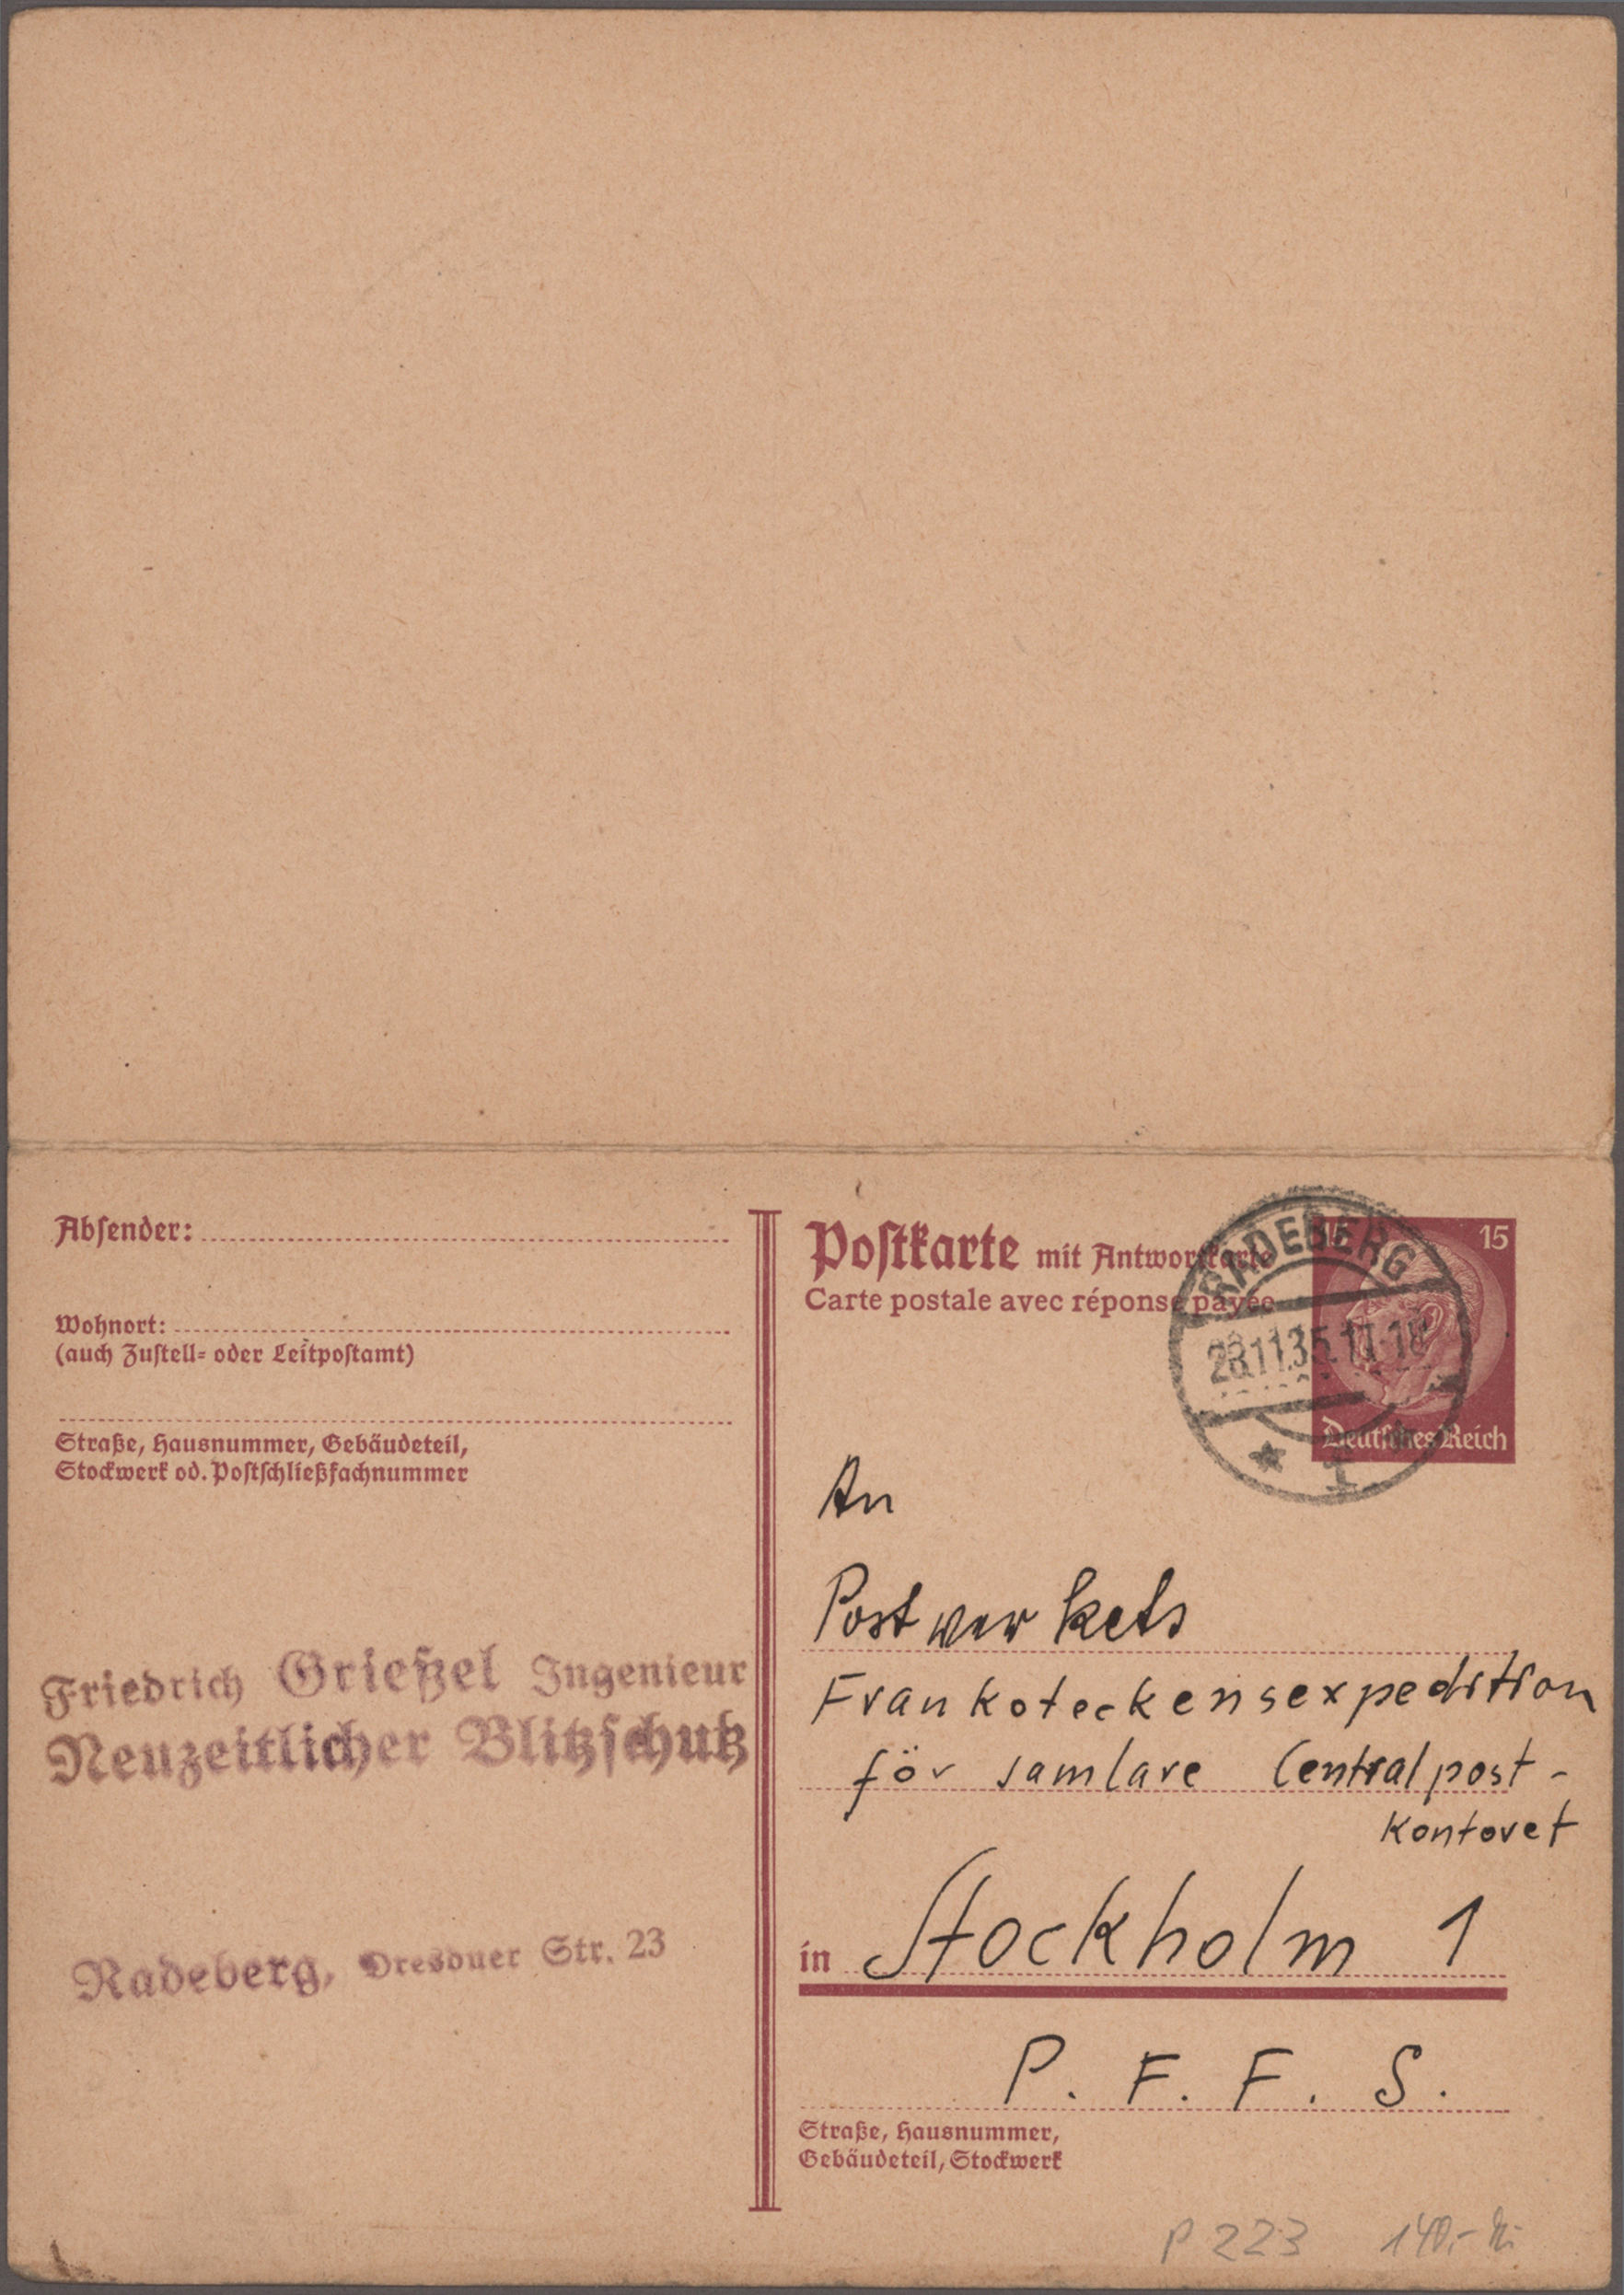 Absender:
Wohnort:
(auch Zustell- oder Leitpostamt)
Straße, Hausnummer, Gebäudeteil,
Stockwerk od. Postschließfachnummer
Friedrich Grießel Ingenieur
Neuzeitlicher Blitzschutz
Radeberg, Dresdner Str. 23
Postkarte mit Antwortkarte
Carte postale avec réponse payée
RADEBERG
28.11.35.17-18
15 15
Deutsches Reich
An
Postwerkets
Frankoteckensexpedition
för samlare Centralpost-
kontoret
in Stockholm 1
P. F. F. S.
Straße, Hausnummer,
Gebäudeteil, Stockwerk
P 223 140,-